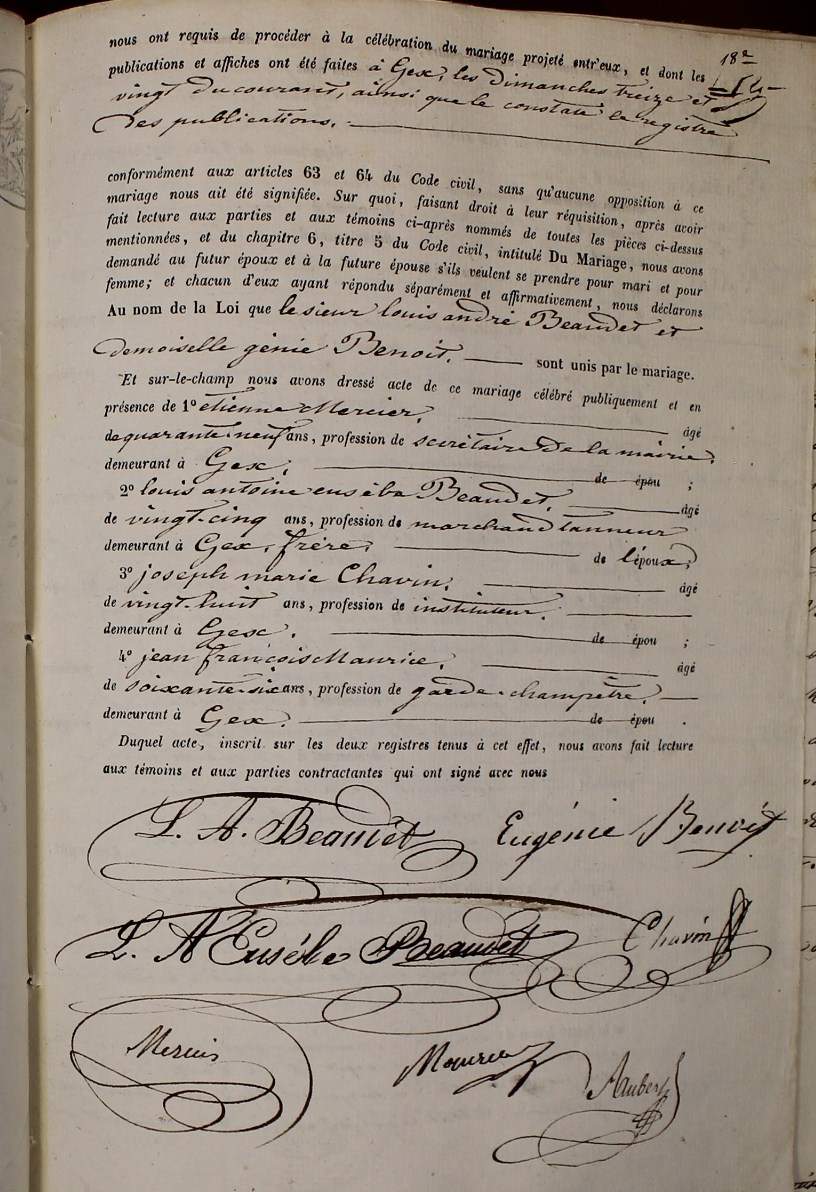 nous ont requis de procéder à la célébration du mariage projeté entr'eux, et dont les
18e
publications et affiches ont été faites à Gex, les Dimanches treize et
vingt Du courant, ainsi que le constate le registre
Des publications.
conformément aux articles 63 et 64 du Code civil, sans qu'aucune opposition à ce
mariage nous ait été signifiée. Sur quoi, faisant droit à leur réquisition, après avoir
fait lecture aux parties et aux témoins ci-après nommés de toutes les pièces ci-dessus
mentionnées, et du chapitre 6, titre 5 du Code civil, intitulé Du Mariage, nous avons
demandé au futur époux et à la future épouse s'ils veulent se prendre pour mari et pour
femme; et chacun d'eux ayant répondu séparément et affirmativement, nous déclarons
Au nom de la Loi que le sieur louis andré Beaudet et
demoiselle génie Benoit. sont unis par le mariage.
Et sur-le-champ nous avons dressé acte de ce mariage célébré publiquement et en
présence de 1° etienne Mercier, âgé
de quarante-neuf ans, profession de secrétaire De la mairie,
demeurant à Gex, de épou ;
2° louis antoine eusèbe Beaudet, âgé
de vingt-cinq ans, profession de marchand tanneur
demeurant à Gex, frère, de l'époux;
3° joseph marie Chavin, âgé
de vingt-huit ans, profession de instituteur,
demeurant à Gex, de épou ;
4° jean françois Maurice, âgé
de soixante-six ans, profession de garde-champêtre,
demeurant à Gex. de épou .
Duquel acte, inscrit sur les deux registres tenus à cet effet, nous avons fait lecture
aux témoins et aux parties contractantes qui ont signé avec nous
L. A. Beaudet Eugénie Benoit
L. A Eusèbe Beaudet Chavin
Mercier Maurice Aubert